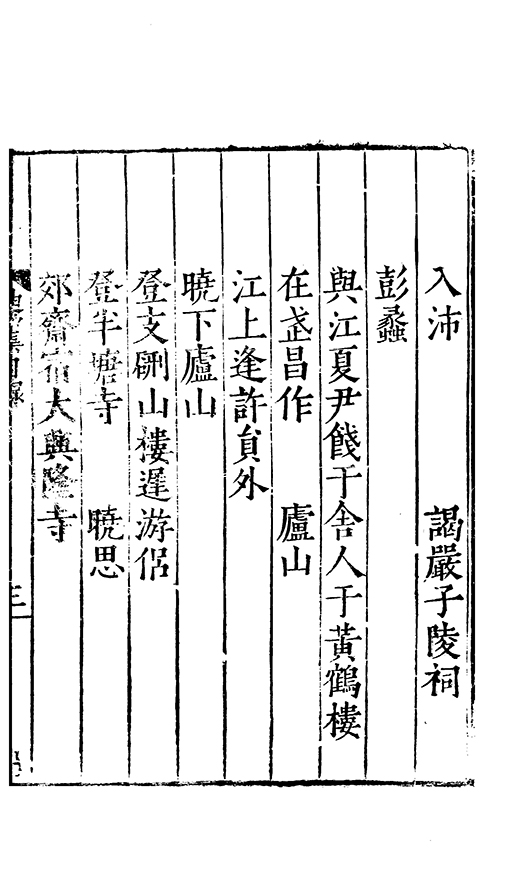 入沛　謁嚴子陵祠
彭蠡
與江夏尹餞于舍人于黃鶴樓
在武昌作　廬山
江上逢許員外
曉下廬山
登支硎山樓遲游侶
登半塘寺　曉思
郊齋宿大興隆寺
集目錄
三